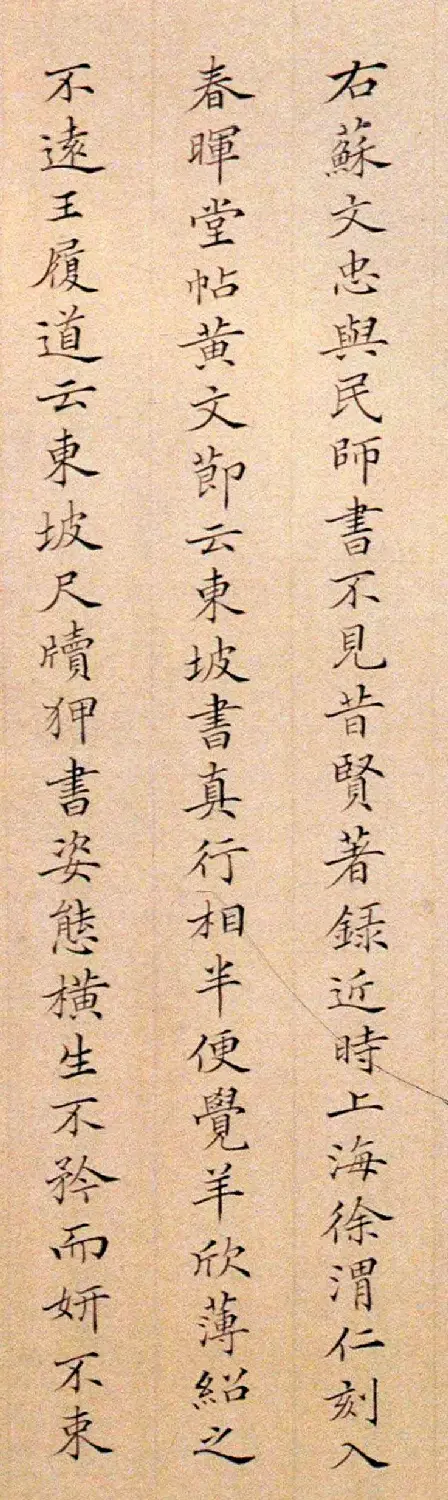 右蘇文忠與民師書不見昔賢著錄近時上海徐渭仁刻入
春暉堂帖黃文節云東坡書真行相半便覺羊欣薄紹之
不遠王履道云東坡尺牘狎書姿態橫生不矜而妍不束